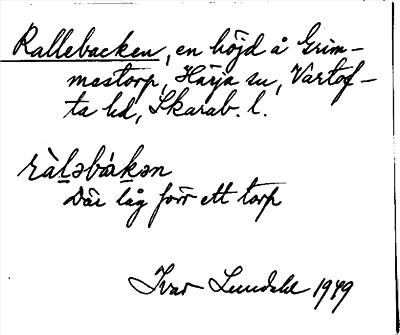 Rallebacken, en höjd å Grim-
mestorp, Härja sn, Vartof-
ta hd, Skarab. l.
ràləbákən
Där låg förr ett torp
Ivar Lundahl 1949